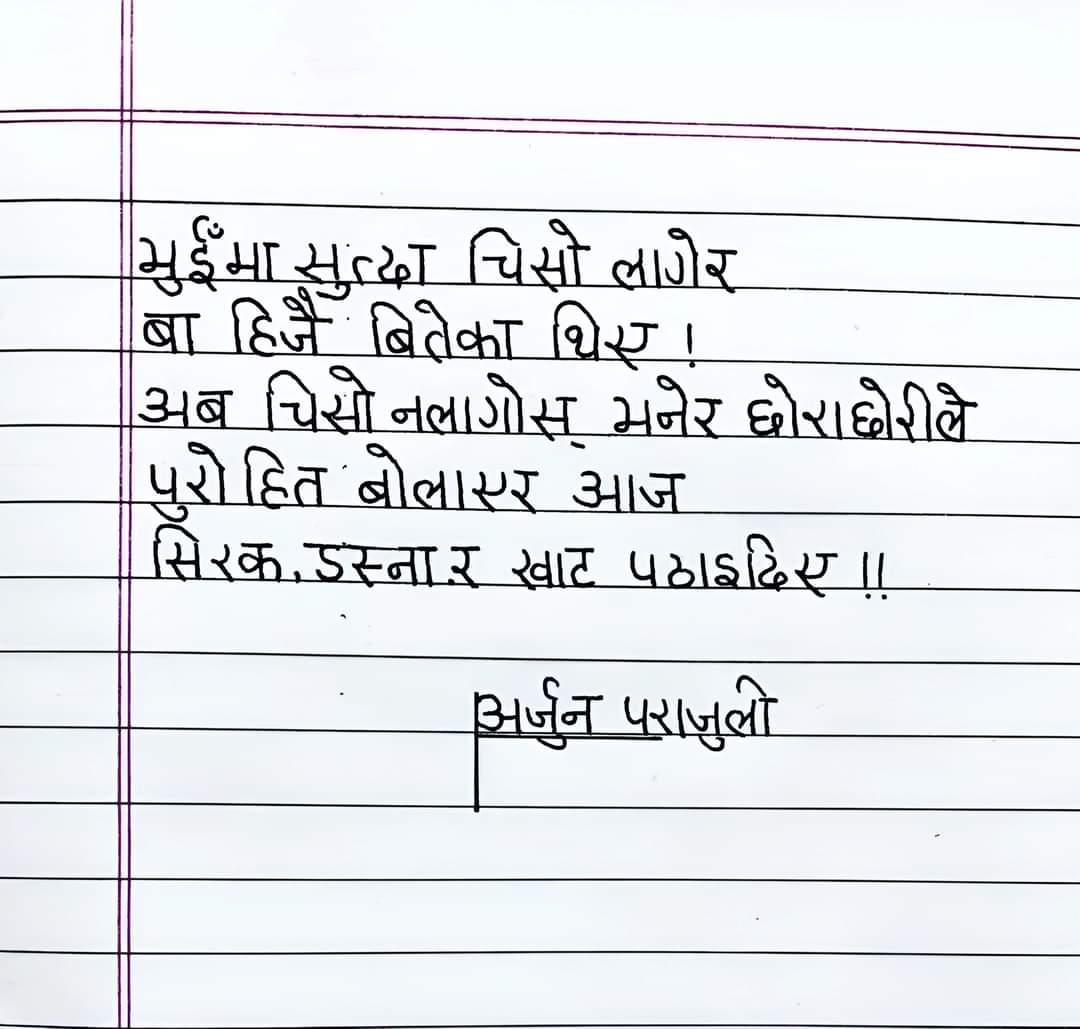 भुइँमा सुत्दा चिसो लागेर
बा हिजै बितेका थिए !
अब चिसो नलागोस् भनेर छोराछोरीले
पुरोहित बोलाएर आज
सिरक, डस्ना र खाट पठाइदिए !!
अर्जुन पराजुली